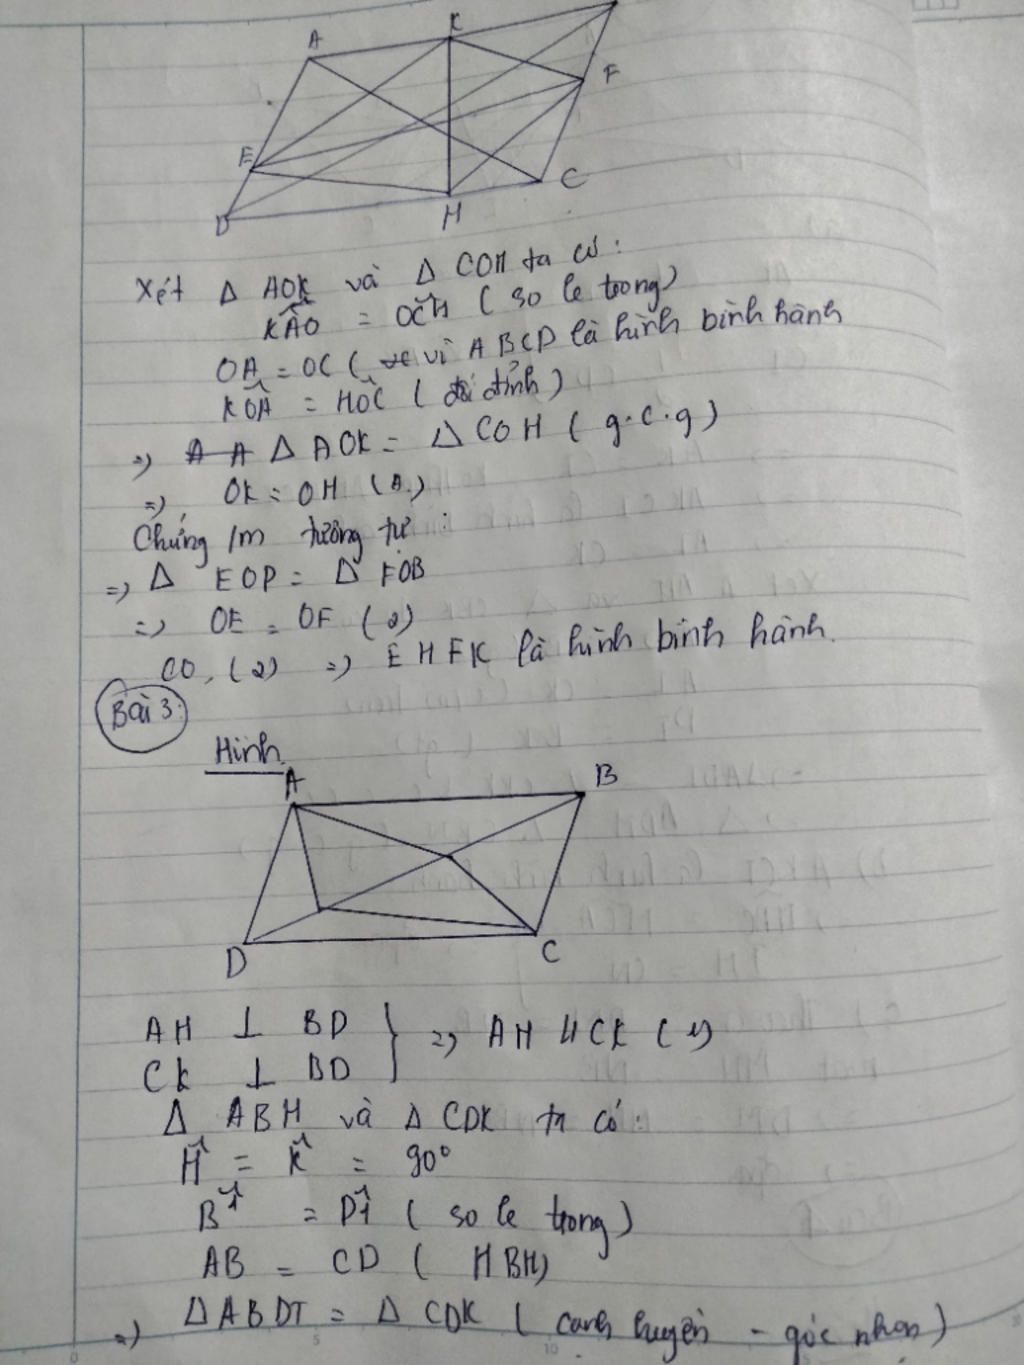 A K
F
E
D H C
Xét Δ AOK và Δ COH ta có:
KÂO = OĈH (so le trong)
OA = OC ( vì ABCD là hình bình hành
KÔA = HÔC ( đối đỉnh)
=> Δ AOK = Δ COH ( g.c.g)
=> OK = OH (1)
Chứng /m tương tự:
=> Δ EOP = Δ FOB
=> OE = OF (2)
CO, (2) => EHFK là hình bình hành.
Bài 3:
Hình
A B
D C
AH ⊥ BD } => AH // CK (1)
CK ⊥ BD
Δ ABH và Δ CDK ta có:
Ĥ = K̂ = 90°
B̂1 = D̂1 ( so le trong)
AB = CD ( HBH)
=> Δ ABDT = Δ CDK ( cạnh huyền - góc nhọn)